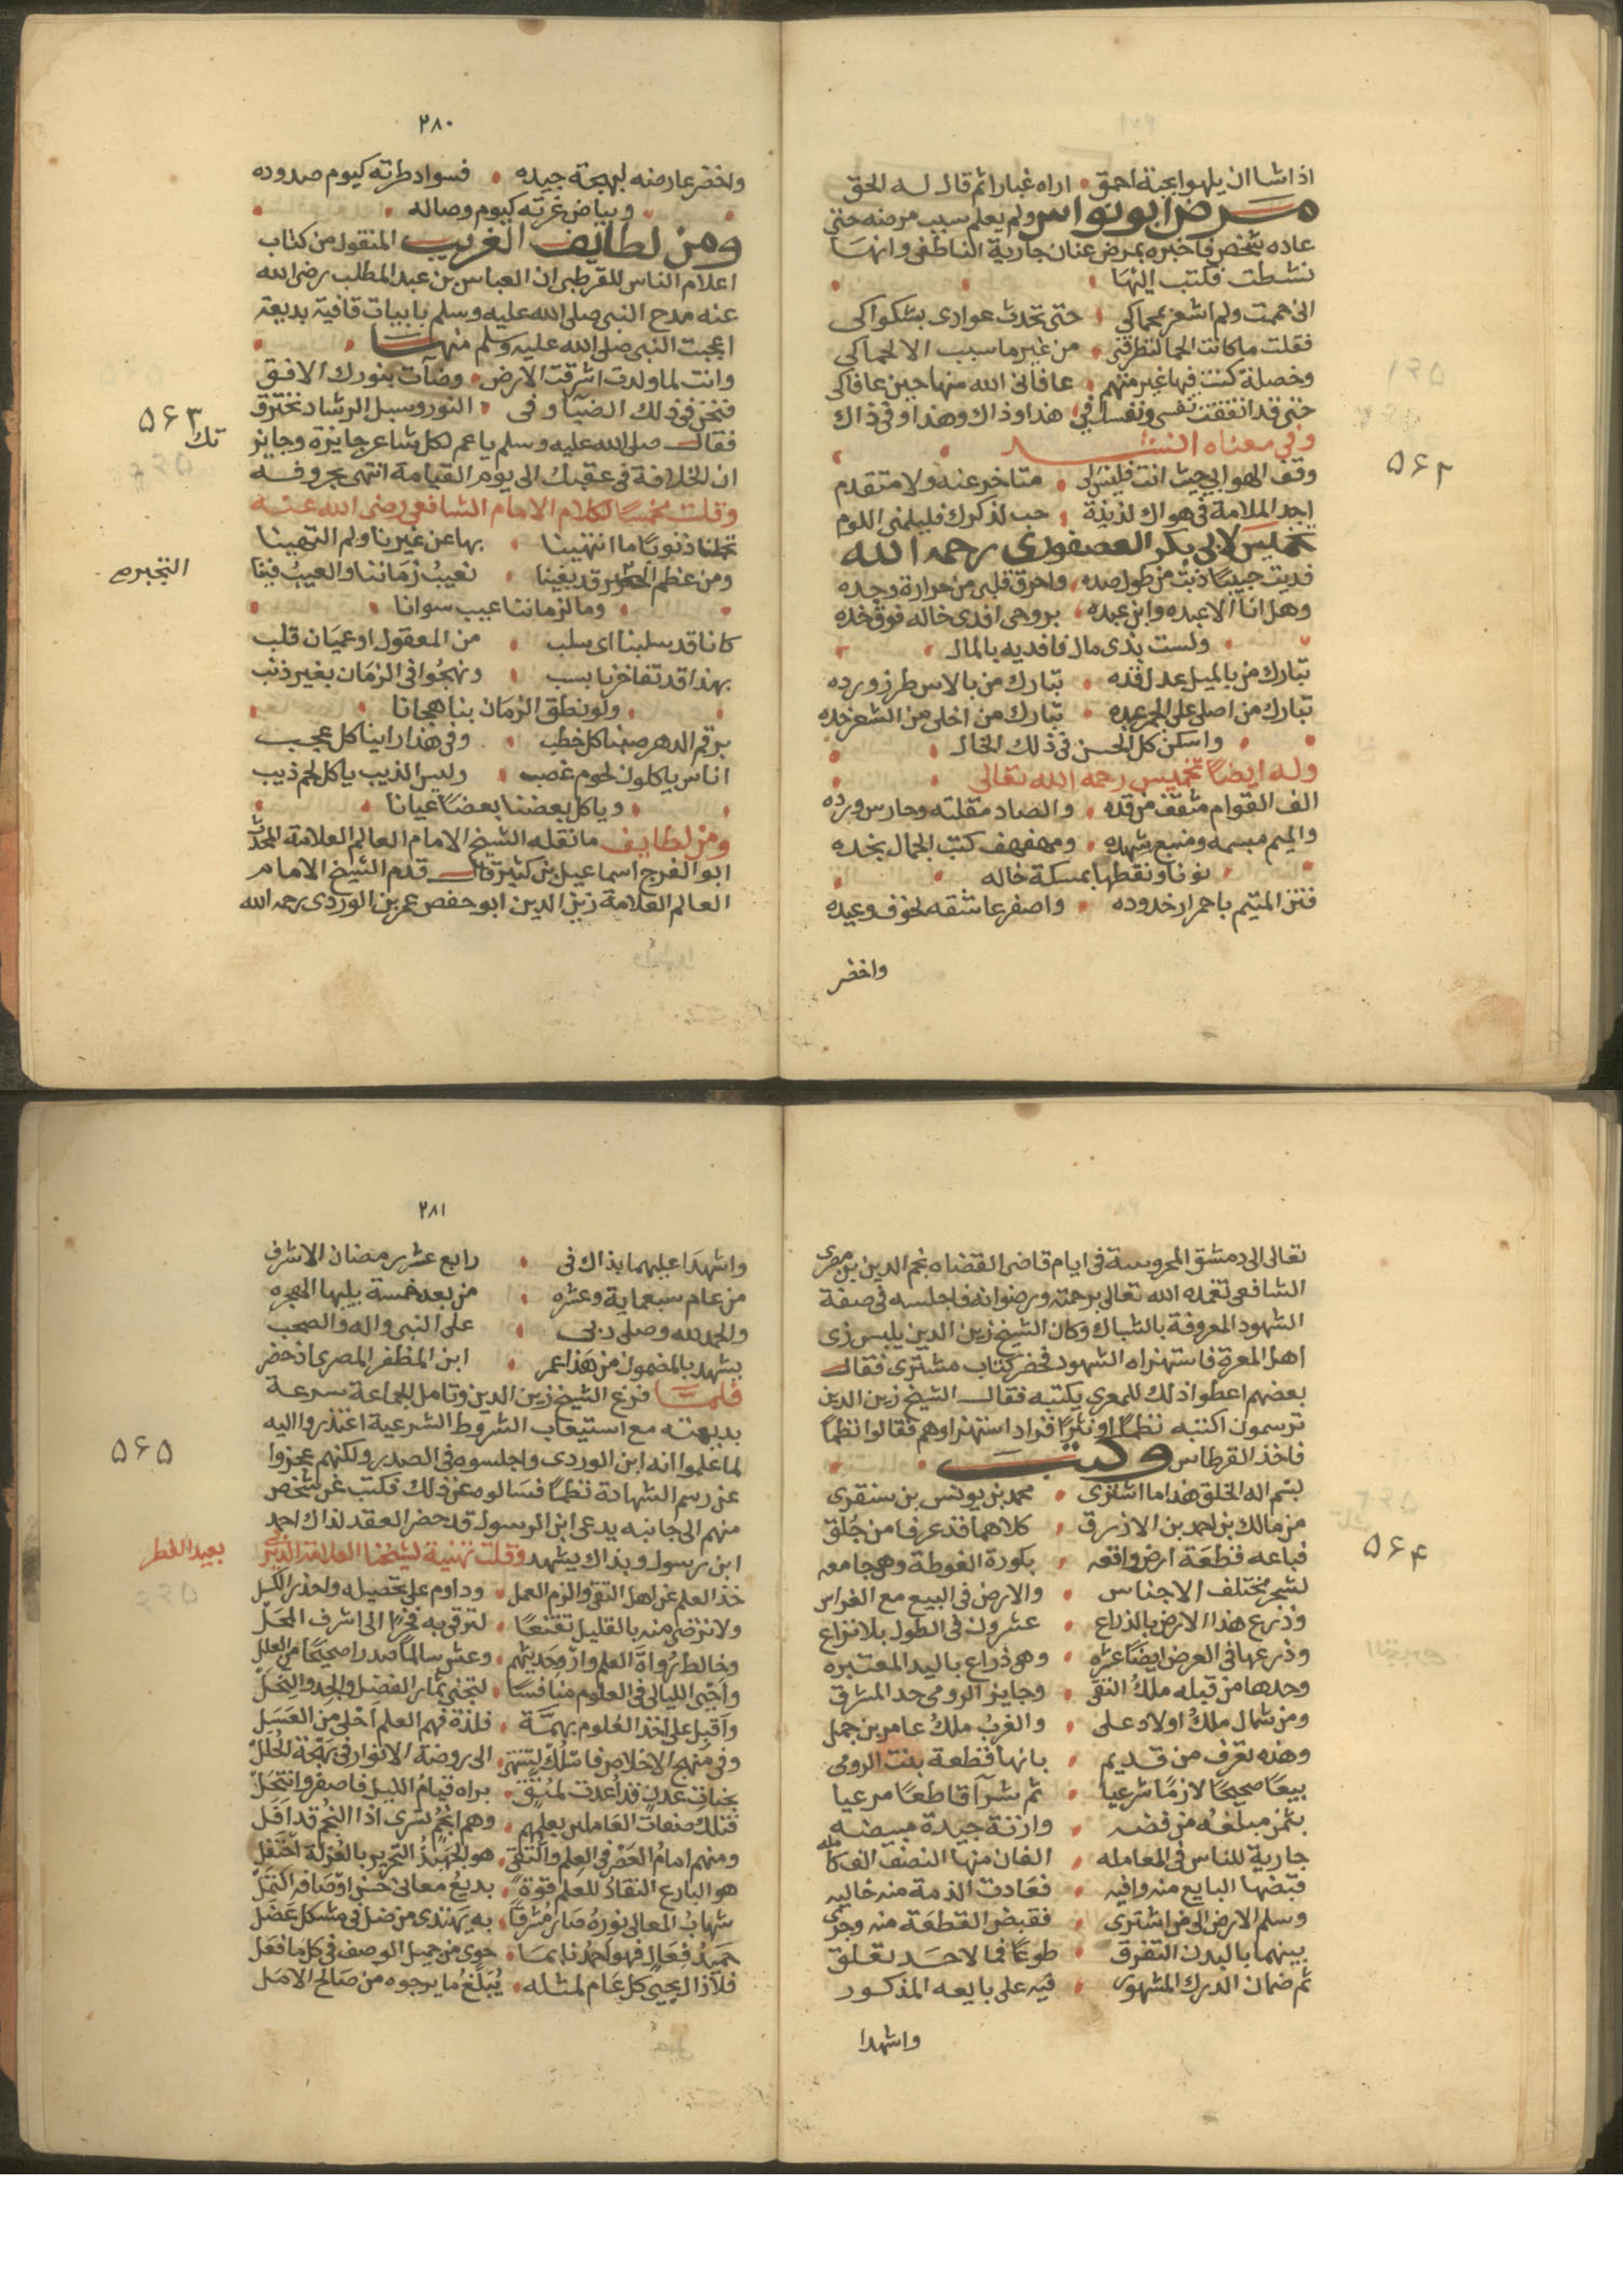 اذا شا ان يلهوا بجنة احمق • اراه غبارا ثم قال له الحق
مرض ابو نواس ولم يعلم سبب مرضه حتى
عاده شخص فاخبره بمرض عنان جارية الناطفى وانها
نشطت فكتب اليها
انى حممت ولم اشعر بحماكى • حتى تحدث عوادى بشكواكى
فقلت ما كانت الحما لتطرقنى • من غير ما سبب الا لحماكى
وخصلة كنت فيها غير متهم • عافانى الله منها حين عافاكى
حتى قد اتفقت نفسى ونفسك فى • هذا وذاك وهذا وفى ذاك
وفى معناه انشد
۵۶۲
وقف الهوا بى حيث انت فليس لى • متاخر عنه ولا متقدم
اجد الملامة فى هواك لذيذة • حب لذكرك فليلمنى اللوم
تخميس لابى بكر العصفورى رحمه الله
فديت حبيبا ذبت من طول صده • واحرق قلبى من حرارة وجده
وهل انا الا عبده وابن عبده • بروحى افدى خاله فوق خده
ولست بذى مال فافديه بالمال
تبارك من بالميل عدل قده • تبارك من بالاس طرز ورده
تبارك من اصلى على الجمر عبده • تبارك من اخلى من الشعر خده
واسكن كل الحسن فى ذلك الخال
وله ايضا تخميس رحمه الله تعالى
الف القوام مثقف من قده • والصاد مقلته وحارس ورده
والميم مبسمه ومنبع شهده • ومهفهف كتب الجمال بخده
نونا ونقطها بمسكة خاله
فتن المتيم باحمرار خدوده • واصفر عاشقه لخوف وعيده
واخضر
٢٨٠
واخضر عارضه لبهجة جيده • فسواد طرته كيوم صدوده
وبياض غرته كيوم وصاله
ومن لطايف الغريب المنقول من كتاب
اعلام الناس للقرطبى ان العباس بن عبد المطلب رضى الله
عنه مدح النبى صلى الله عليه وسلم بابيات قافية بديعة
اعجبت النبى صلى الله عليه وسلم منها
وانت لما ولدت اشرقت الارض • وضآت بنورك الافق
۵۶۳
فنحن فى ذلك الضيا وفى • النور وسبل الرشاد نخترق
فقال صلى الله عليه وسلم يا عم لكل شاعر جايزة وجايز
تك
ان الخلافة فى عقبك الى يوم القيامة انتهى بحروفه
وقلت مخمسا لكلام الامام الشافعى رضى الله عنه
تحملنا ذنوبا ما انتهينا • بها عن غيرنا ولم التهينا
ومن عظم قد بغينا • نعيب زماننا والعيب فينا
وما لزماننا عيب سوانا
كانا قد سلبنا اى سلب • من المعقول او عميان قلب
بهذا قد تفاخرنا بسب • ونهجوا فى الزمان بغير ذنب
ولو نطق الزمان بنا هجانا
برقم الدهر صفنا كل خطب • وفى هذا راينا كل عجب
اناس ياكلون لحوم غصب • وليس الذيب ياكل لحم ذيب
وياكل بعضنا بعضا عيانا
ومن لطايف ما نقله الشيخ الامام العالم العلامة المحدث
ابو الفرج اسماعيل بن كثير قال قدم الشيخ الامام
العالم العلامة زين الدين ابو حفص عمر بن الوردى رحمه الله
تعالى الى دمشق المحروسة فى ايام قاضى القضاه نجم الدين بن صصرى
الشافعى تغمده الله تعالى برحمته ورضوانه فاجلسه فى صفة
الشهود المعروفة بالشباك وكان الشيخ زين الدين يلبس زى
اهل المعرة فاستهزاه الشهود فحضر كتاب مشترى فقال
بعضهم اعطوا ذلك للمعرى يكتبه فقال الشيخ زين الدين
ترسمون اكتبه نظما او نثرا فزاد استهزاوهم فقالوا نظما
فاخذ القرطاس وكتب
بسم اله الخلق هذا ما اشترى • محمد بن يونس بن سنقرى
من مالك بن احمد بن الازرق • كلاهما قد عرفا من جلق
۵۶۴
فباعه قطعة ارض واقعه • بكورة الغوطة وهى جامعه
لشجر مختلف الاجناس • والارض فى البيع مع الغراس
وذرع هذا الارض بالذراع • عشرون فى الطول بلا نزاع
وذرعها فى العرض ايضا عشره • وهى ذراع باليد المعتبره
وحدها من قبله ملك التقى • وجايز الرومى حد المشرق
ومن شمال ملك اولاد على • والغرب ملك عامر بن جهبل
وهذه تعرف من قديم • بانها قطعة بنت الرومى
بيعا صحيحا لازما شرعيا • ثم شرآ قاطعا مرعيا
بثمن مبلغه من فضه • وازنة جيدة مبيضه
جارية للناس فى المعامله • الفان منها النصف الف كامله
قبضها البايع منه وافيه • فعادت الذمة منه خاليه
وسلم الارض الى من اشترى • فقبض القطعة منه وجرى
بينهما بالبدن التفرق • طوعا فما لاحد تعلق
ثم ضمان الدرك المشهور • فيه على بايعه المذكور
واشهدا
٢٨١
واشهدا عليهما بذاك فى • رابع عشر رمضان الاشرف
من عام سبعماية وعشره • من بعد خمسة يليها الهجره
والحمد لله وصلى ربى • على النبى واله والصحب
يشهد بالمضمون من هذا عمر • ابن المظفر المصرى اذ حضر
فلما فرغ الشيخ زين الدين وتامل الجماعة سرعة
بديهته مع استيعاب الشروط الشرعية اعتذروا اليه
۵۶۵
لما علموا انه ابن الوردى واجلسوه فى الصدر ولكنهم عجزوا
عن رسم الشهادة نظما فسالوه عن ذلك فكتب عن شخص
منهم الى جانبه يدعى ابن الرسول قد حضر العقد لذاك احمد
ابن رسول وبذاك يشهد وقلت تهنية لشيخنا العلامة
بعيد الفطر
خذ العلم عن اهل التقى والزم العمل • وداوم على تحصيله واحذر الكسل
ولا ترضى منه بالقليل تقنعا • لترقى به فخرا الى اشرف المحل
وخالط رواة العلم وارو حديثهم • وعش سالما صدرا صحيحا من العلل
واحيى الليالى فى العلوم منافسا • لتجنى ثمار الفضل والجد والنحل
واقبل على اخذ العلوم بهمة • فلذة فهم العلم احلى من العسل
وفى منهج الاخلاص فاسلك لتنتهى • الى روضة الانوار فى بهجة الحلل
بجنات عدن قد اعدت لمتق • براه قيام الليل فاصفر وانتحل
فتلك صفات العاملين بعلمهم • وهم انجم تسرى اذا النجم قد افل
ومنهم امام العصر فى العلم والتقى • هو الجهبذ التحرير بالعزلة احتفل
هو البارع النقاد للعلم قوة • بديع معانى حسن اوصافه اكتمل
شهاب المعالى نوره صار مشرقا • به يهتدى من ضل فى مشكل عضل
حميد فعال فهو احمد فايما • حوى من جميل الوصف فى كل ما فعل
فلا زال يحيى كل عام لمثله • يبلغ ما يرجوه من صالح الامل